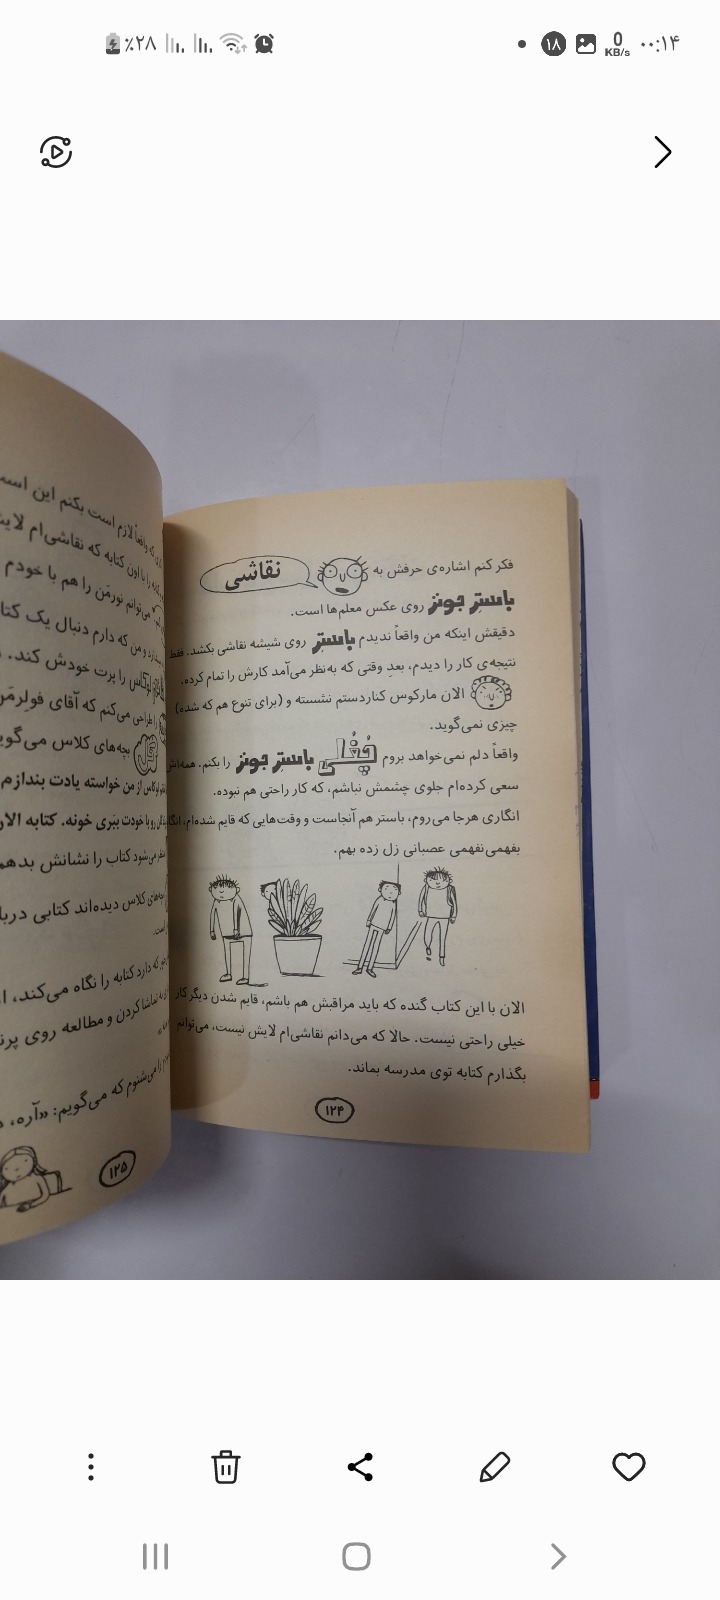 ٪۲۸
۱۸
0 KB/s
۰۰:۱۴
فکر کنم اشاره‌ی حرفش به نقاشی
باستر جونز روی عکس معلم‌ها است.
دقیقش اینکه من واقعاً ندیدم باستر روی شیشه نقاشی بکشد. فقط
نتیجه‌ی کار را دیدم، بعدِ وقتی که به‌نظر می‌آمد کارش را تمام کرده.
الان مارکوس کناردستم نشسته و (برای تنوع هم که شده)
چیزی نمی‌گوید.
واقعاً دلم نمی‌خواهد بروم باستر جونز را بکنم. همه‌اش
سعی کرده‌ام جلوی چشمش نباشم، که کار راحتی هم نبوده.
انگاری هرجا می‌روم، باستر هم آنجاست و وقت‌هایی که قایم شده‌ام، انگار
بفهمی‌نفهمی عصبانی زل زده بهم.
الان با این کتاب گنده که باید مراقبش هم باشم، قایم شدن دیگر کار
خیلی راحتی نیست. حالا که می‌دانم نقاشی‌ام لایش نیست، می‌توانم
بگذارم کتابه توی مدرسه بماند.
۱۲۴
واقعاً لازم است بکنم این است
را با اون کتابه که نقاشی‌ام لایش
می‌توانم نورمن را هم با خودم
و من که دارم دنبال یک کتا
را پرت خودش کند.
می‌کنم که آقای فولرمن
بچه‌های کلاس می‌گوی
از من خواسته یادت بندازم
رو با خودت ببری خونه. کتابه الان
می‌شود کتاب را نشانش بدهم
کلاس دیده‌اند کتابی دربا
است.
که دارد کتابه را نگاه می‌کند، از
تماشا کردن و مطالعه روی پرن
می‌شنوم که می‌گویم: «آره،
۱۲۵